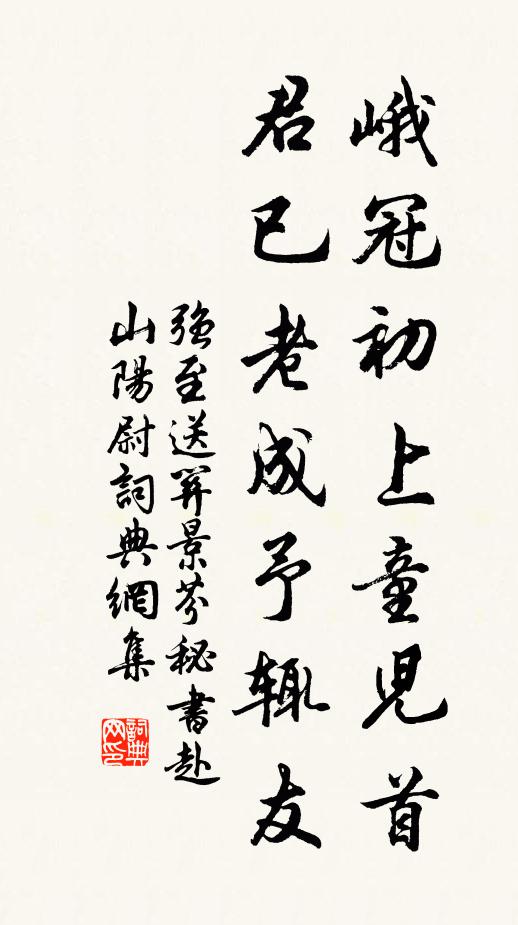 峨冠初上童児首
君已老成予輒友
强至送笄景芬秘書赴
山陽尉詞典網集
詞典网印